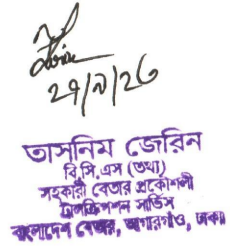 ২৭/৯/২৩
তাসনিম জেরিন
বি,সি,এস (তথ্য)
সহকারী বেতার প্রকৌশলী
ট্রান্সক্রিপশন সার্ভিস
বাংলাদেশ বেতার, আগারগাঁও, ঢাকা।